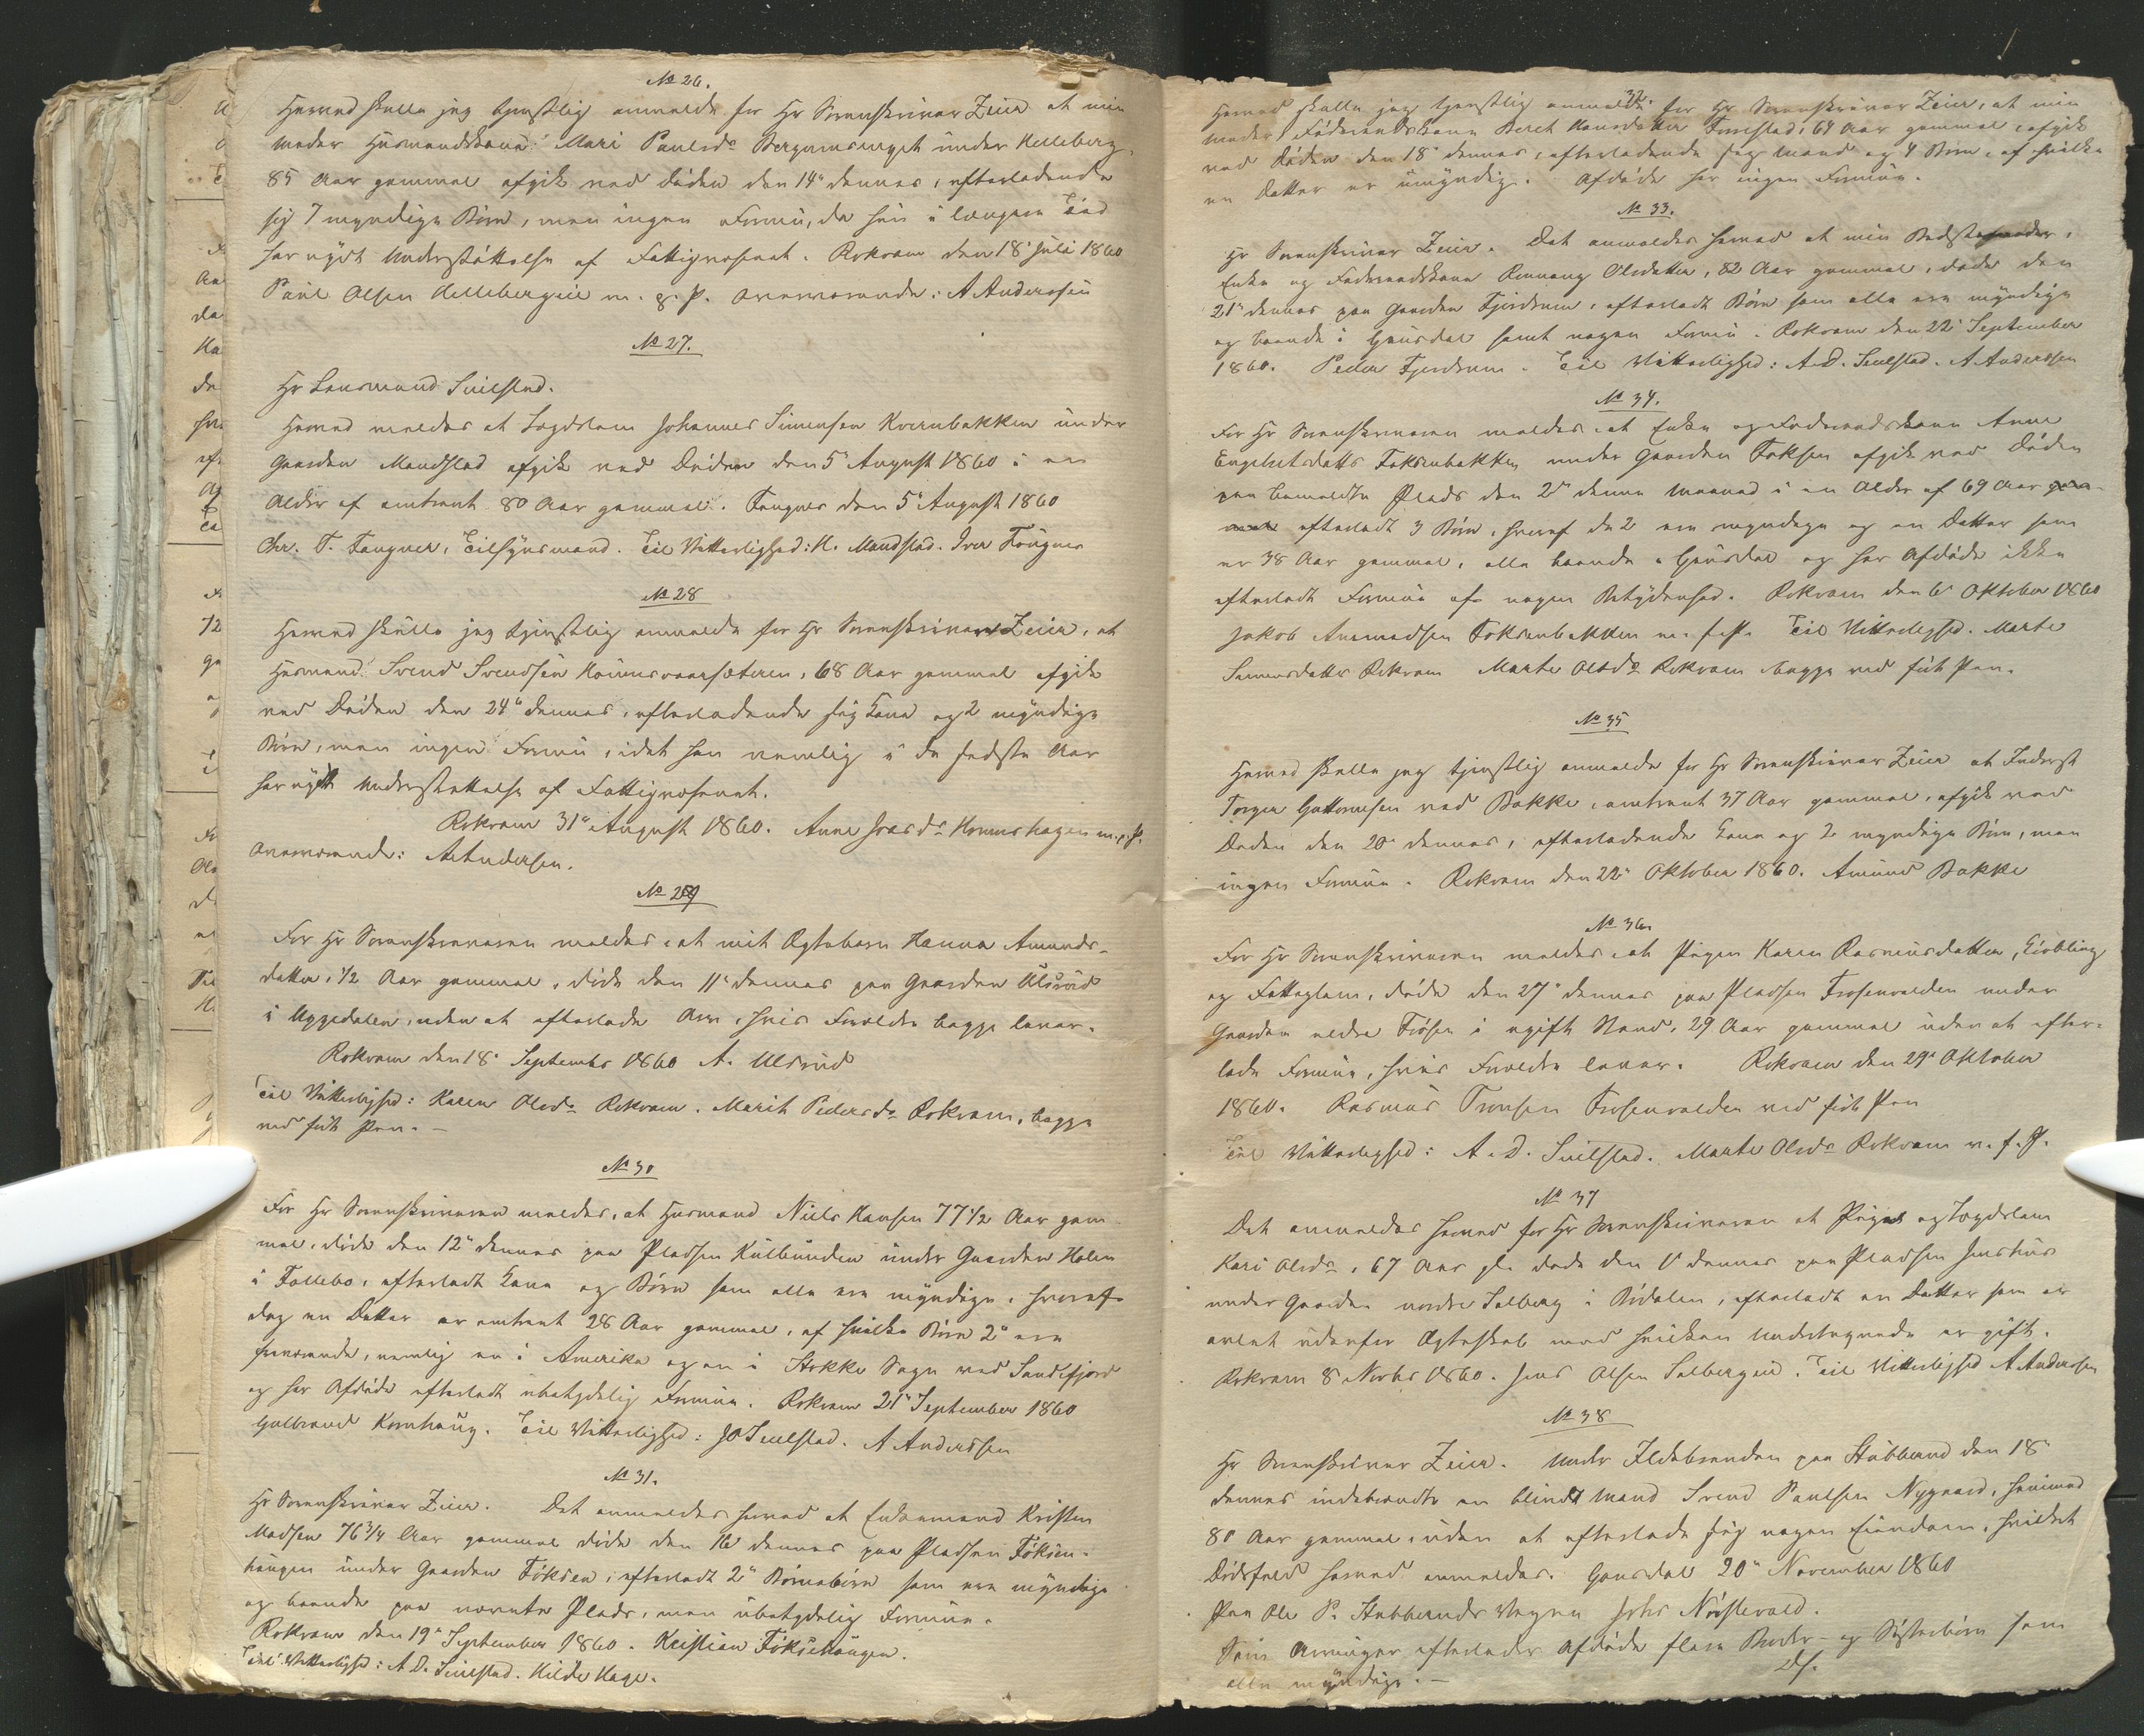 No 26.
Herved skulle jeg tjenstlig anmelde for Hr Sorenskriver Zeier at min
Moder Husmandskone Mari Paulsdr Bergumsmyet under Kelleberg,
85 Aar gammel afgik ved Døden den 14de dennes, efterladende
sig 7 myndige Børn, men ingen Formue, da hun i længere Tid
har nydt Understøttelse af Fattigvæsenet. Rokvam den 18de Juli 1860
Paul Olsen Kellebergeie m. p. P. Overværende: A Anderssen
No 27.
Hr Lensmand Suilstad.
Herved meldes at Lægdslem Johannes Simensen Kvernbakken under
Gaarden Mandstad afgik ved Døden den 5te August 1860 i en
Alder af omtrent 80 Aar gammel. Faugner den 5te August 1860
Chr. T. Faugner, Tilsynsmand. Til Vitterlighed: H. Mandstad. Iver Fougner
No 28
Herved skulle jeg tjenstlig anmelde for Hr Sorenskriver Zeier, at
Husmand Svend Svendsen 68 Aar gammel afgik
ved Døden den 24de dennes, efterladende sig Kone og 2 myndige
Børn, men ingen Formue, idet han nemlig i de sidste Aar
har nydt Understøttelse af Fattigvæsenet.
Rokvam 31te August 1860. Anne Ivarsdr Homshagen m. p. P.
Overværende: A Andersen.
No 29
For Hr Sorenskriveren meldes, at mit Ægtebarn Hanna Amunds-
datter, 1/2 Aar gammel, døde den 11te dennes paa Gaarden Ulsrud
i Uggedalen, uden at efterlade Arv, hvis Forældre begge lever.
Rokvam den 18de Septembr 1860 A. Ulsrud
Til Vitterlighed: Karen Olsdr Rokvam. Marit Pedersdr Rokvam, begge
ved ført Pen. —
No 30
For Hr Sorenskriveren meldes, at Husmand Niels Hansen 77 1/2 Aar gam-
mel, døde den 12te dennes paa Pladsen Kulbunden under Gaarden Holen
i Follebo, efterladt Kone og Børn som alle ere myndige, hvoraf
dog en Datter er omtrent 28 Aar gammel, af hvilke Børn 2de ere
fraværende, nemlig en i Amerika og en i Stokke Sogn ved Sandefjord
og har Afdøde efterladt ubetydelig Formue. Rokvam 21de September 1860
Gulbrand Kornhaug. Til Vitterlighed: JO Suilstad. A Anderssen
No 31.
Hr Sorenskriver Zeier. Det anmeldes herved at Enkemand Kristen
Madsen 76 3/4 Aar gammel døde den 16 dennes paa Pladsen Foksen-
haugen under Gaarden Foksen, efterladt 2de Børnebørn som ere myndige
og boende paa nævnte Plads, men ubetydelig Formue.
Rokvam den 19de September 1860. Kristian Foksehaugen.
Til Vitterlighed: A.D. Suilstad. Hilde Hage.
32.
Herved skulle jeg tjenstlig anmelde for Hr Sorenskriver Zeier, at min
Moder Føderaadskone Beret Hansdatter Turistad, 64 Aar gammel, afgik
ved Døden den 18de dennes, efterladende sig Mand og 4 Børn, af hvilke
en Datter er umyndig. Afdøde har ingen Formue.
No 33.
Hr Sorenskriver Zeier. Det anmeldes herved at min Bedstemoder,
Enke og Føderaadskone Rønnaug Olsdatter, 82 Aar gammel, døde den
21de dennes paa Gaarden Fjerdrum, efterladt Børn som alle ere myndige
og boende i Gausdal samt nogen Formue. Rokvam den 22de September
1860. Peder Fjerdrum. Til Vitterlighed: A.D. Suilstad. A Anderssen
No 34.
For Hr Sorenskriveren meldes at Enke og Føderaadskone Anne
Engebretsdatter Foksenbakken under Gaarden Foksen afgik ved Døden
paa bemeldte Plads den 2den denne Maaned i en Alder af 69 Aar
efterladt 3 Børn, hvoraf de 2 ere myndige og en Datter som
er 38 Aar gammel, alle boende i Gausdal og har Afdøde ikke
efterladt Formue af nogen Betydenhed. Rokvam den 6 Oktober 1860
Jakob Foksenbakken m. f. P. Til Vitterlighed. Marte
Simensdatter Rokvam Marte Olsdr Rokvam begge ved ført Pen.
No 35
Herved skulle jeg tjenstlig anmelde for Hr Sorenskriver Zeier at Inderst
Torger Guttormsen ved Bakke, omtrent 37 Aar gammel, afgik ved
Døden den 20de dennes, efterladende Kone og 2 myndige Børn, men
ingen Formue. Rokvam den 22de Oktober 1860. Amund Bakke
No 36
For Hr Sorenskriveren meldes, at Pigen Karen Rasmusdatter,
og Fattiglem, døde den 27de dennes paa Pladsen Frosenvolden under
Gaarden nedre Frøsen i ugift Stand, 29 Aar gammel uden at efter-
lade Formue, hvis Forældre lever. Rokvam den 29de Oktober
1860. Rasmus Tronsen Frosenvolden ved ført Pen
Til Vitterlighed: A. D. Suilstad. Marte Olsdr Rokvam v. f. P.
No 37
Det anmeldes herved for Hr Sorenskriveren at Pigen og Lægdslem
Kari Olsdr, 67 Aar gl. døde den 6 dennes paa Pladsen Jenshus
under Gaarden nordre Solberg i Bødalen, efterladt en Datter som er
avlet udenfor Ægteskab med hvilken Undertegnede er gift.
Rokvam 8 Novbr 1860. Jens Olsen Solbergeie. Til Vitterlighed A Anderssen
No 38
Hr Sorenskriver Zeier. Under Ildebranden paa Stubberud den 18de
dennes indebrændte en blind Mand Svend Paulsen Nygaard, henimod
80 Aar gammel, uden at efterlade sig nogen Eiendom, hvilket
Dødsfald herved anmeldes. Gausdal 20de November 1860
Paa Ole P. Stubberuds Vegne Johs Nørstevold.
Som Arvinger efterlader Afdøde flere Broder- og Søsterbørn som
alle myndige. — Ds.